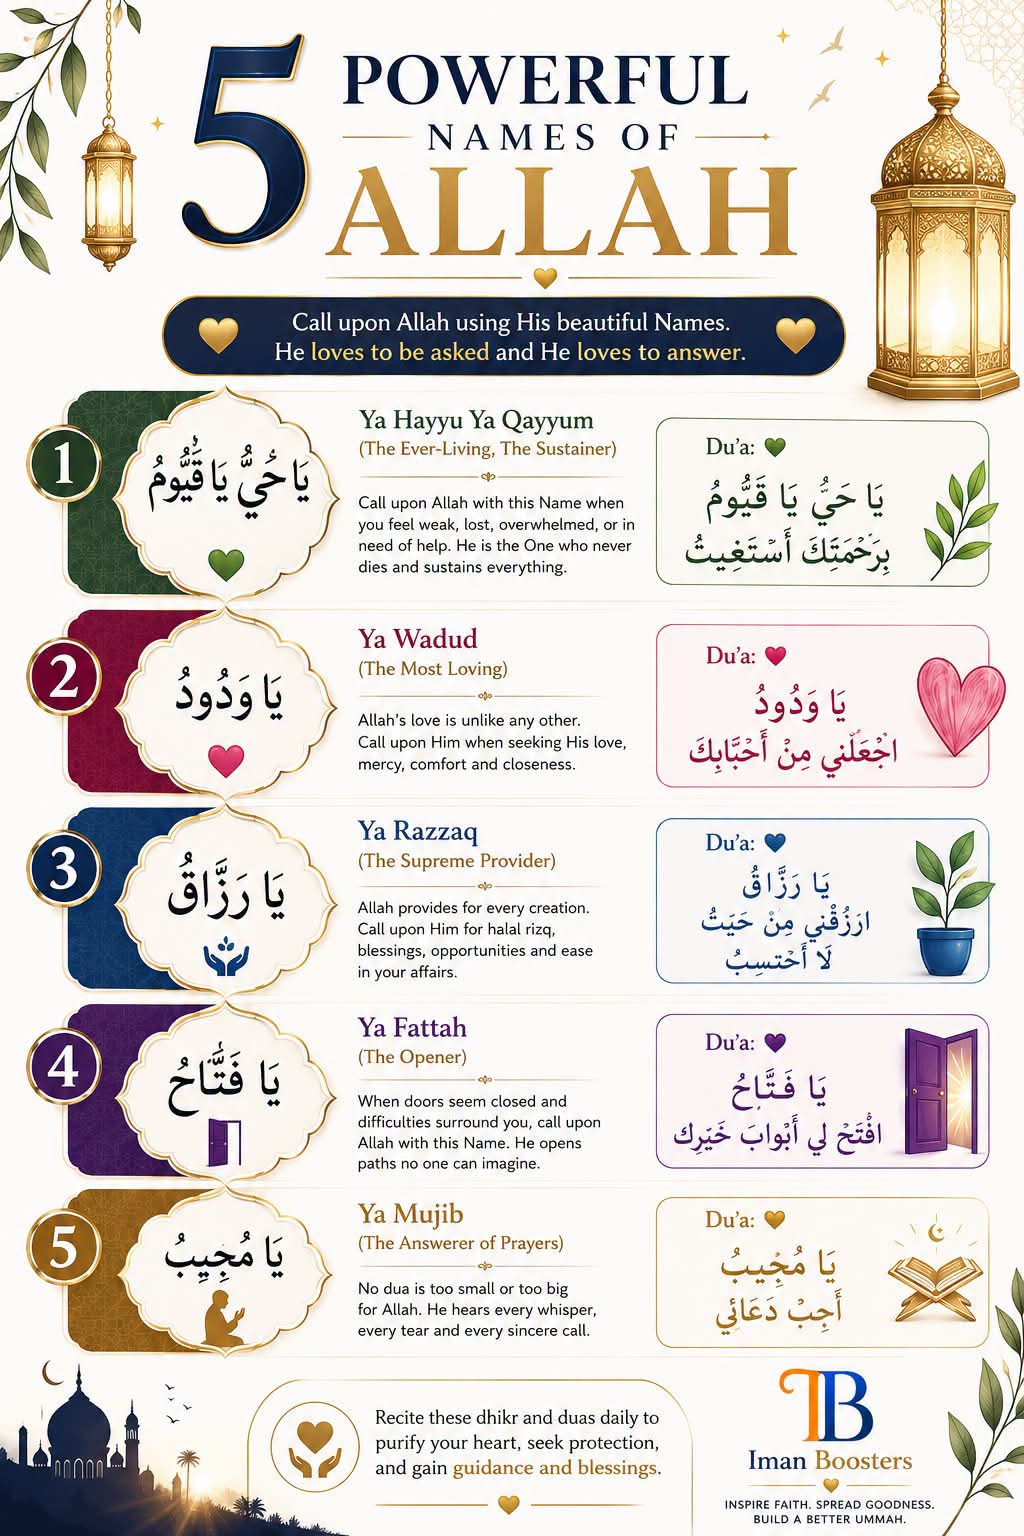 5 POWERFUL
NAMES OF
ALLAH
Call upon Allah using His beautiful Names.
He loves to be asked and He loves to answer.
1
يَا حُيُّ يَا قَيُّومُ
Ya Hayyu Ya Qayyum
(The Ever-Living, The Sustainer)
Call upon Allah with this Name when
you feel weak, lost, overwhelmed, or in
need of help. He is the One who never
dies and sustains everything.
Du'a:
يَا حَيُّ يَا قَيُّومُ
بِرَحْمَتِكَ أَسْتَغِيتُ
2
يَا وَدُودُ
Ya Wadud
(The Most Loving)
Allah's love is unlike any other.
Call upon Him when seeking His love,
mercy, comfort and closeness.
Du'a:
يَا وَدُودُ
اجْعَلّني مِنْ أَحْبَّابِكَ
3
يَا رَزَّاقُ
Ya Razzaq
(The Supreme Provider)
Allah provides for every creation.
Call upon Him for halal rizq,
blessings, opportunities and ease
in your affairs.
Du'a:
يَا رَزَّاقُ
ارَزُقْني مِنْ حَيَتُ
لَا أَحْتسِبُ
4
يَا فَتَّاحُ
Ya Fattah
(The Opener)
When doors seem closed and
difficulties surround you, call upon
Allah with this Name. He opens
paths no one can imagine.
Du'a:
يَا فَتَّاحُ
افْتَحْ لي أَبْوابَ خَيَرِك
5
يَا مُجِيِبُ
Ya Mujib
(The Answerer of Prayers)
No dua is too small or too big
for Allah. He hears every whisper,
every tear and every sincere call.
Du'a:
يَا مُجْيبُ
أَجِبْ دَعَائِي
Recite these dhikr and duas daily to
purify your heart, seek protection,
and gain guidance and blessings.
IB
Iman Boosters
INSPIRE FAITH. SPREAD GOODNESS.
BUILD A BETTER UMMAH.